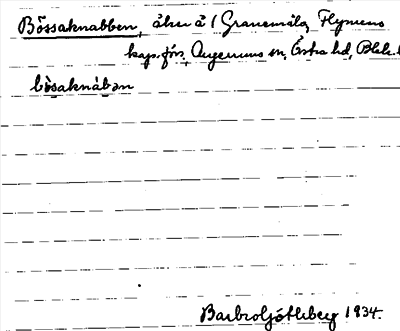 Bössaknabben, åker å 1 Granemåla, Flymens
kap.förs, Augerums sn, Östra hd, Blek.l
bòsaknában
Barbro Götheberg 1934.